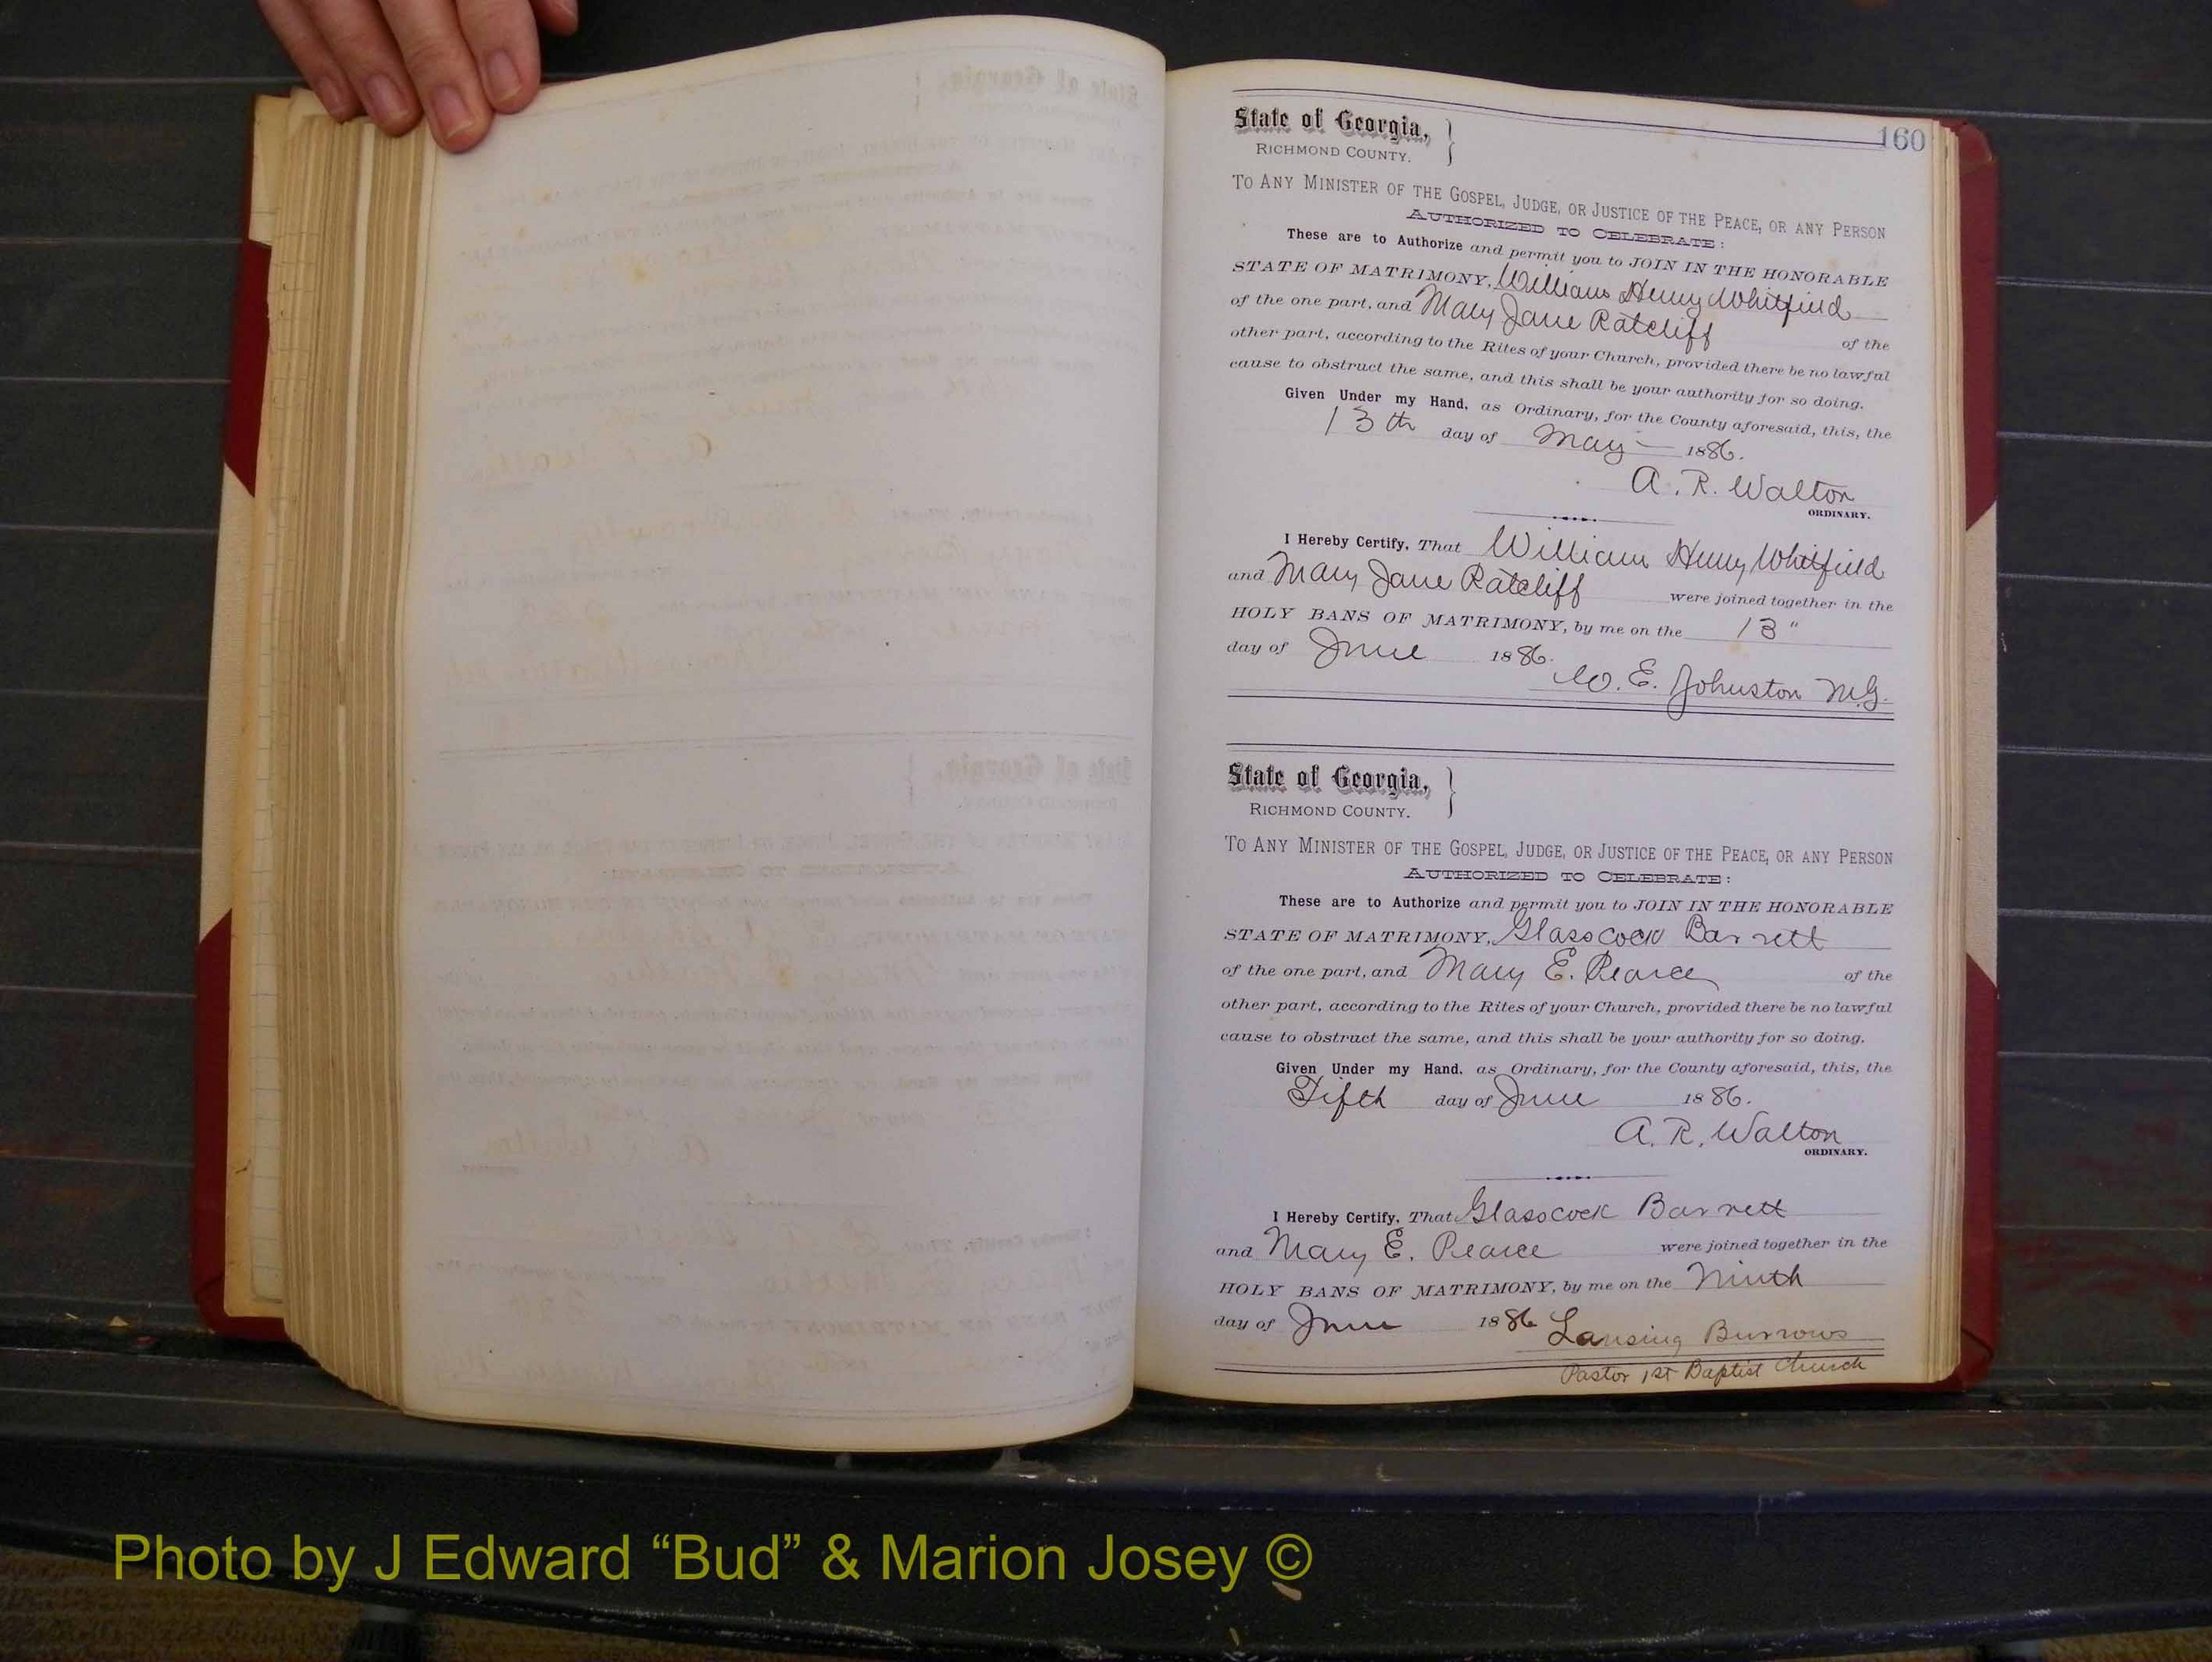 160
State of Georgia, }
RICHMOND COUNTY.
TO ANY MINISTER OF THE GOSPEL, JUDGE, OR JUSTICE OF THE PEACE, OR ANY PERSON
AUTHORIZED TO CELEBRATE:
These are to Authorize and permit you to JOIN IN THE HONORABLE
STATE OF MATRIMONY, William Henry Whitfield
of the one part, and Mary Jane Ratcliff of the
other part, according to the Rites of your Church, provided there be no lawful
cause to obstruct the same, and this shall be your authority for so doing.
Given Under my Hand, as Ordinary, for the County aforesaid, this, the
13th day of May 1886.
A. R. Walton
ORDINARY.
I Hereby Certify, That William Henry Whitfield
and Mary Jane Ratcliff were joined together in the
HOLY BANS OF MATRIMONY, by me on the 13"
day of June 1886.
W. E. Johnston M.G.
State of Georgia, }
RICHMOND COUNTY.
TO ANY MINISTER OF THE GOSPEL, JUDGE, OR JUSTICE OF THE PEACE, OR ANY PERSON
AUTHORIZED TO CELEBRATE:
These are to Authorize and permit you to JOIN IN THE HONORABLE
STATE OF MATRIMONY, Glasscock Barrett
of the one part, and Mary E. Pearce of the
other part, according to the Rites of your Church, provided there be no lawful
cause to obstruct the same, and this shall be your authority for so doing.
Given Under my Hand, as Ordinary, for the County aforesaid, this, the
Fifth day of June 1886.
A. R. Walton
ORDINARY.
I Hereby Certify, That Glasscock Barrett
and Mary E. Pearce were joined together in the
HOLY BANS OF MATRIMONY, by me on the Ninth
day of June 1886 Lansing Burrows
Pastor 1st Baptist Church
Photo by J Edward “Bud” & Marion Josey ©